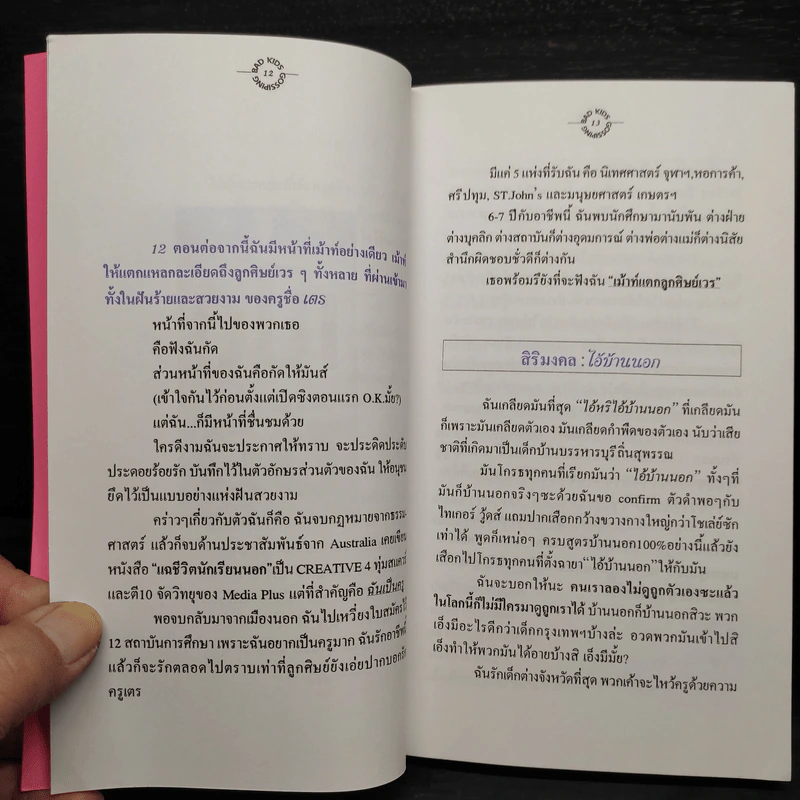 BAD KIDS GOSSIPING
12
12 ตอนต่อจากนี้ฉันมีหน้าที่เม้าท์อย่างเดียว เม้าท์
ให้แตกแหลกละเอียดถึงลูกศิษย์เวร ๆ ทั้งหลาย ที่ผ่านเข้ามา
ทั้งในฝันร้ายและสวยงาม ของครูชื่อ เตร
หน้าที่จากนี้ไปของพวกเธอ
คือฟังฉันกัด
ส่วนหน้าที่ของฉันคือกัดให้มันส์
(เข้าใจกันไว้ก่อนตั้งแต่เปิดซิงตอนแรก O.K.มั้ย?)
แต่ฉัน...ก็มีหน้าที่ชื่นชมด้วย
ใครดีงามฉันจะประกาศให้ทราบ จะประดิดประดับ
ประดอยร้อยรัก บันทึกไว้ในตัวอักษรส่วนตัวของฉัน ให้อนุชน
ยึดไว้เป็นแบบอย่างแห่งฝันสวยงาม
คร่าวๆเกี่ยวกับตัวฉันก็คือ ฉันจบกฎหมายจากธรรม-
ศาสตร์ แล้วก็จบด้านประชาสัมพันธ์จาก Australia เคยเขียน
หนังสือ "แฉชีวิตนักเรียนนอก"เป็น CREATIVE 4 ทุ่มสแควร์
และตี10 จัดวิทยุของ Media Plus แต่ที่สำคัญคือ ฉันเป็นครู
พอจบกลับมาจากเมืองนอก ฉันไปเหวี่ยงใบสมัครไว้
12 สถาบันการศึกษา เพราะฉันอยากเป็นครูมาก ฉันรักอาชีพนี้
แล้วก็จะรักตลอดไปตราบเท่าที่ลูกศิษย์ยังเอ่ยปากบอกรัก
ครูเตร
BAD KIDS GOSSIPING
13
มีแค่ 5 แห่งที่รับฉัน คือ นิเทศศาสตร์ จุฬาฯ,หอการค้า,
ศรีปทุม, ST.John's และมนุษยศาสตร์ เกษตรฯ
6-7 ปีกับอาชีพนี้ ฉันพบนักศึกษามานับพัน ต่างฝ่าย
ต่างบุคลิก ต่างสถาบันก็ต่างอุดมการณ์ ต่างพ่อต่างแม่ก็ต่างนิสัย
สำนึกผิดชอบชั่วดีก็ต่างกัน
เธอพร้อมรึยังที่จะฟังฉัน "เม้าท์แตกลูกศิษย์เวร"
สิริมงคล : ไอ้บ้านนอก
ฉันเกลียดมันที่สุด "ไอ้หริไอ้บ้านนอก" ที่เกลียดมัน
ก็เพราะมันเกลียดตัวเอง มันเกลียดกำพืดของตัวเอง นับว่าเสีย
ชาติที่เกิดมาเป็นเด็กบ้านบรรหารบุรีถิ่นสุพรรณ
มันโกรธทุกคนที่เรียกมันว่า "ไอ้บ้านนอก" ทั้งๆที่
มันก็บ้านนอกจริงๆซะด้วยฉันขอ confirm ตัวดำพอๆกับ
ไทเกอร์ วู้ดส์ แถมปากเสือกกว้างขวางกางใหญ่กว่าโชเล่ย์ซัก
เท่าได้ พูดก็เหน่อๆ ครบสูตรบ้านนอก100%อย่างนี้แล้วยัง
เสือกไปโกรธทุกคนที่ตั้งฉายา "ไอ้บ้านนอก"ให้กับมัน
ฉันจะบอกให้นะ คนเราลองไม่ดูถูกตัวเองซะแล้ว
ในโลกนี้ก็ไม่มีใครมาดูถูกเราได้ บ้านนอกก็บ้านนอกสิวะ พวก
เอ็งมีอะไรดีกว่าเด็กกรุงเทพฯบ้างล่ะ อวดพวกมันเข้าไปสิ
เอ็งทำให้พวกมันได้อายบ้างสิ เอ็งมีมั้ย?
ฉันรักเด็กต่างจังหวัดที่สุด พวกเค้าจะไหว้ครูด้วยความ